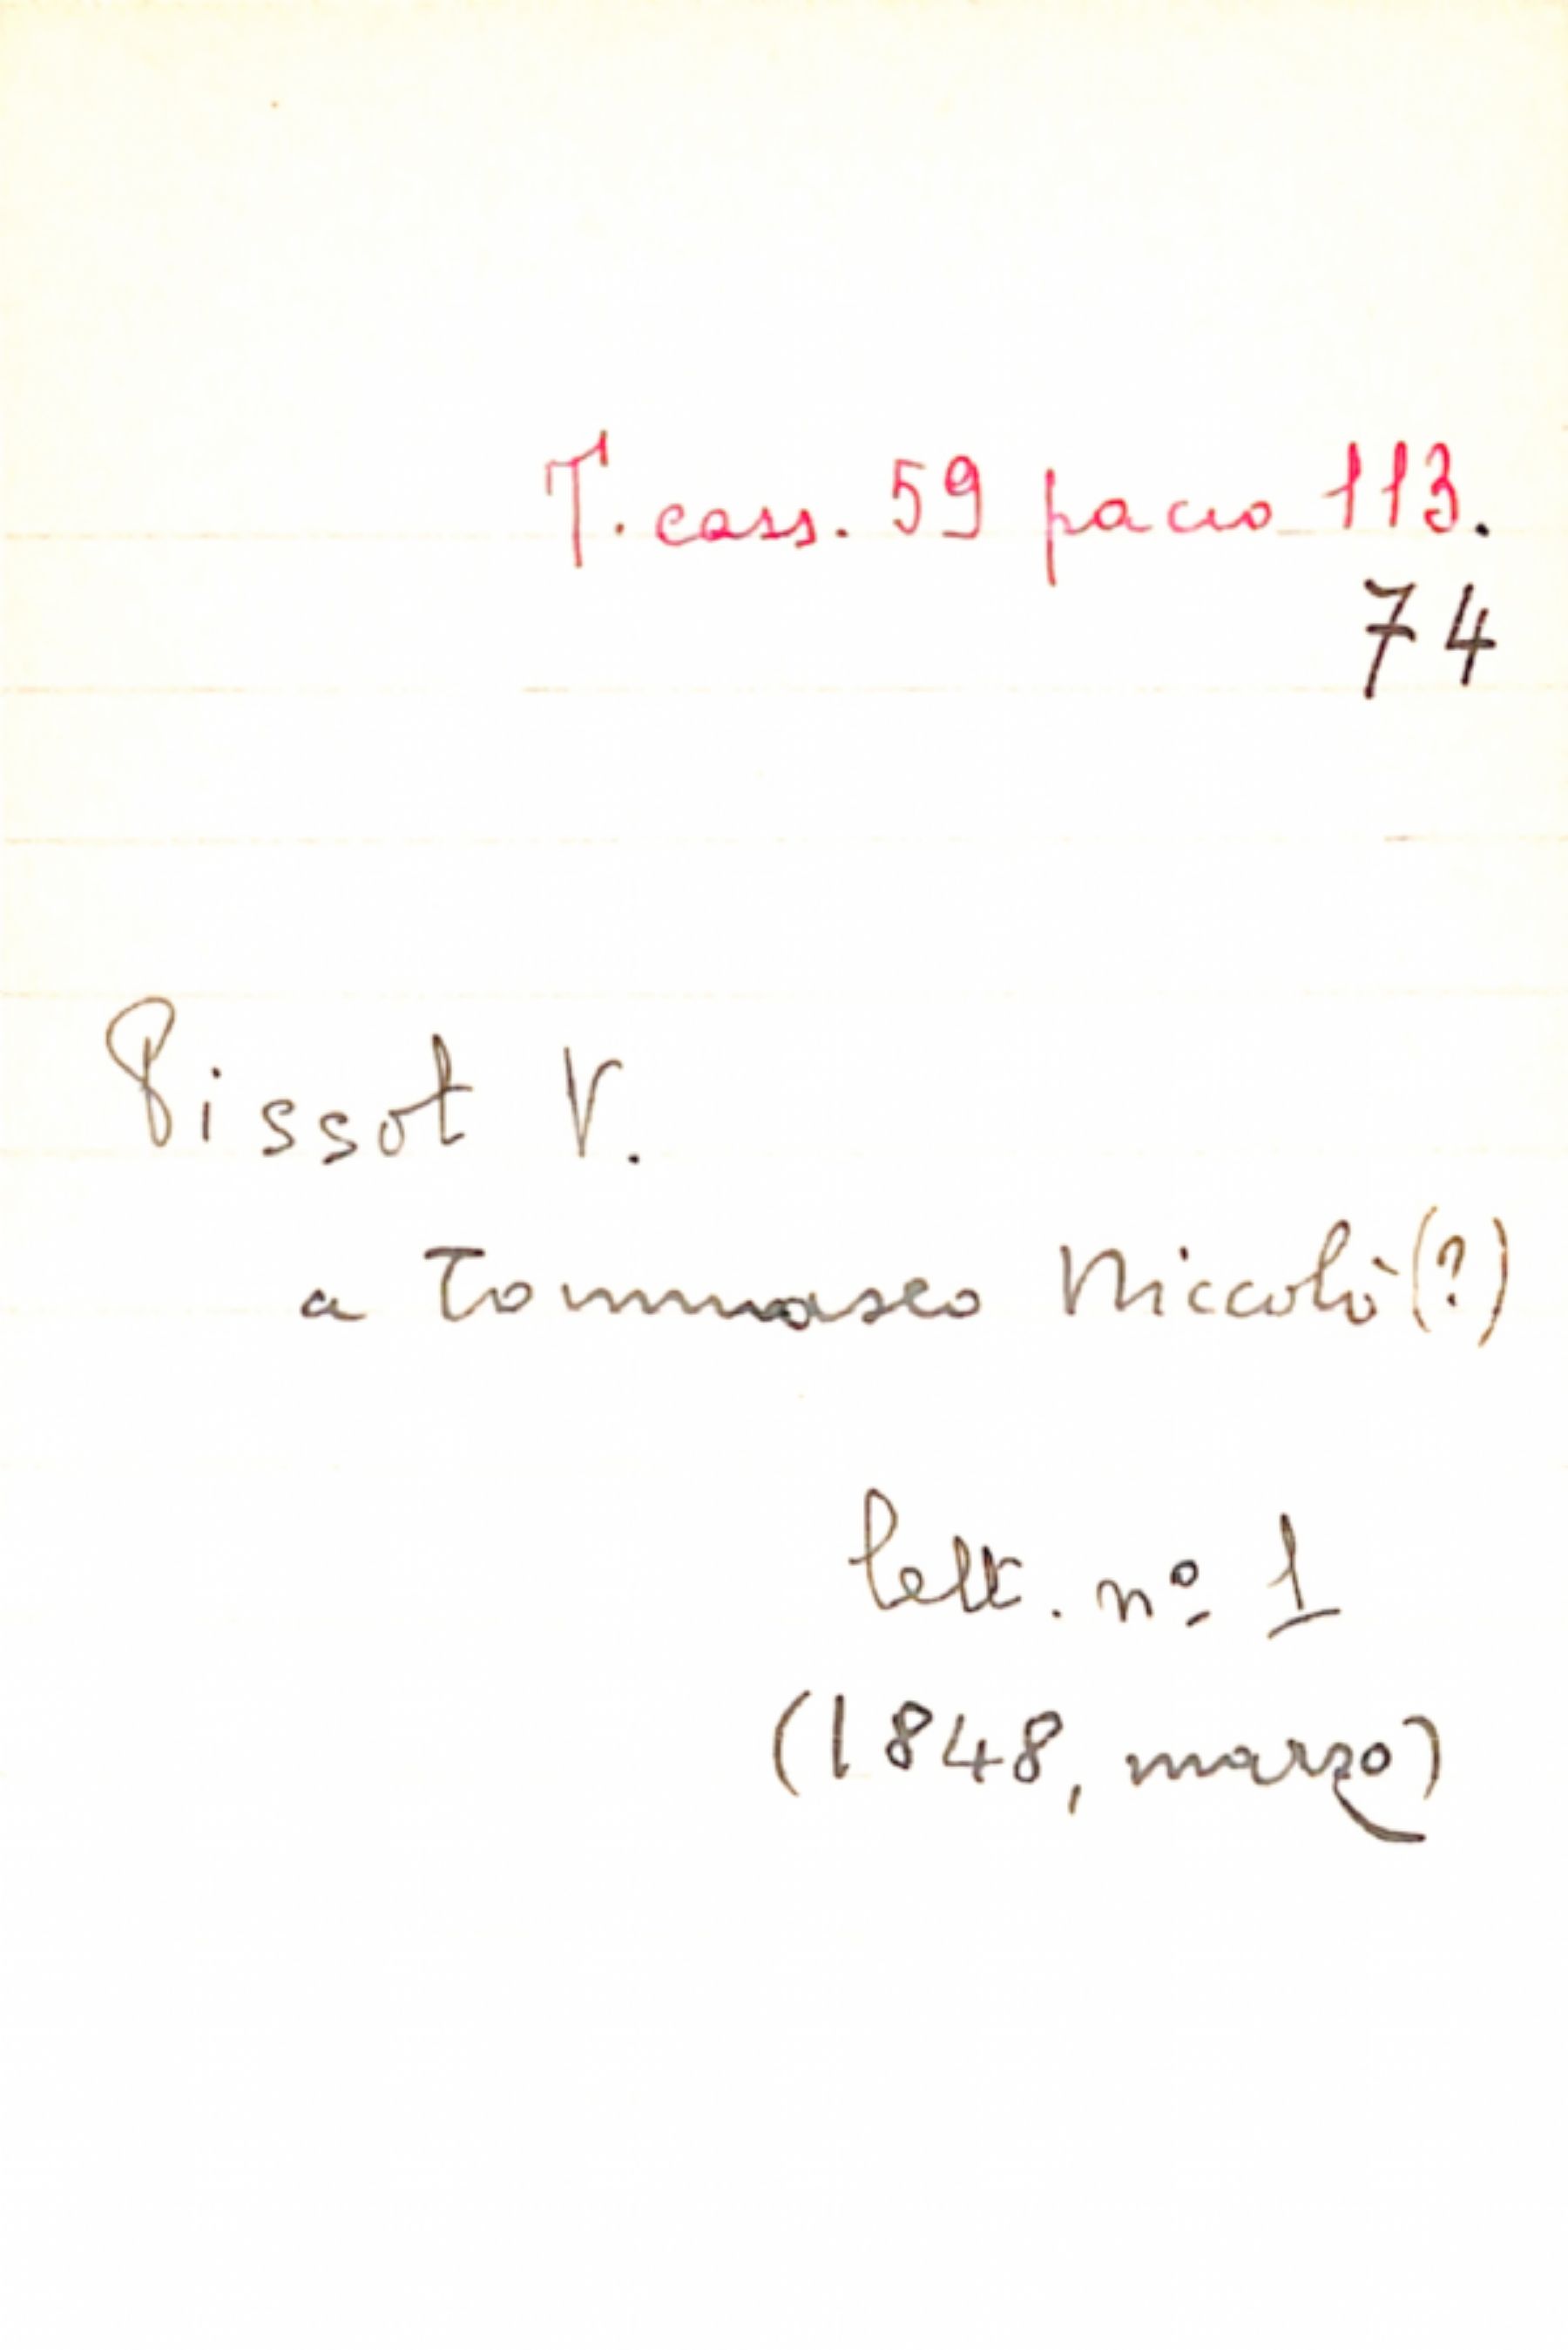 T. cass. 59 pacco 113.
74
Pissot V.
a Tommaseo Niccolò (?)
lett. nº 1
(1848, marzo)